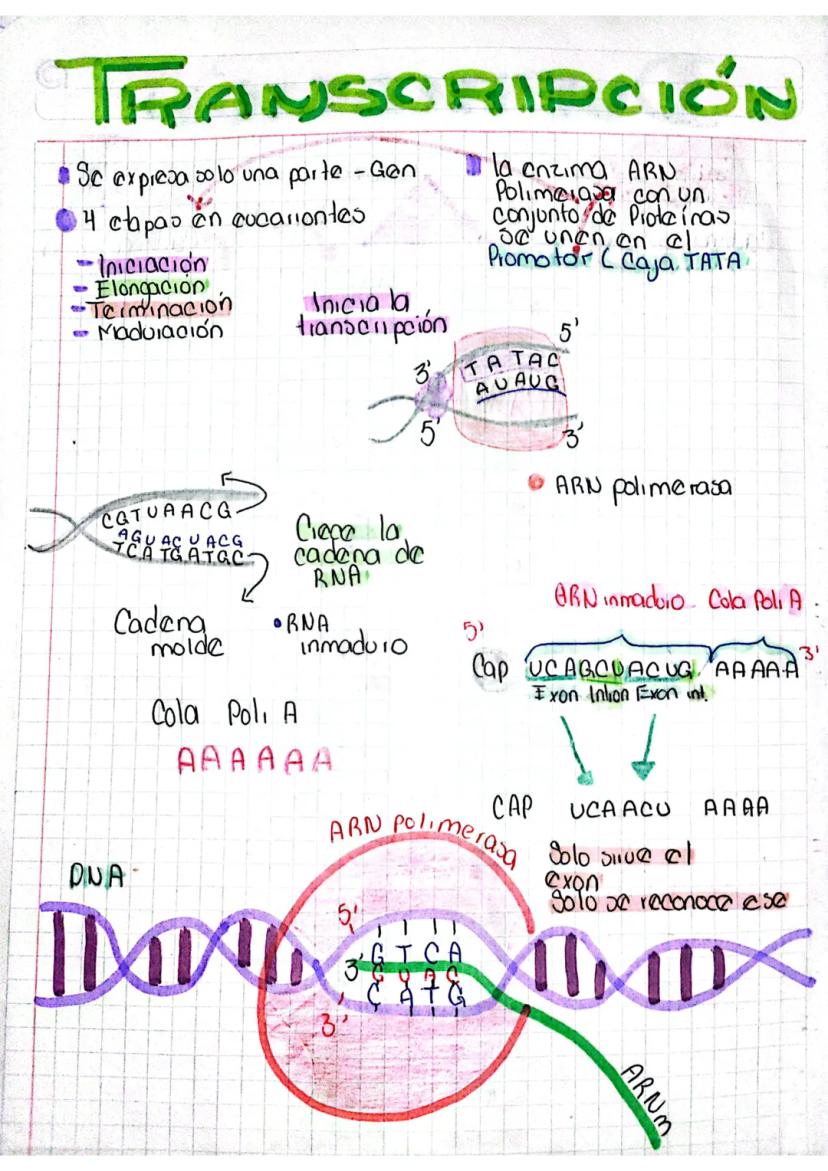 TRANSCRIPCIÓN
Se expresa solo una parte - Gen
4 etapas en eucariontes
- Iniciación
- Elongación
- Terminación
- Maduración
la enzima ARN
Polimerasa con un
conjunto de Proteínas
se unen en el
Promotor ( Caja TATA
Inicia la
transcripción
5'
3'
TATAC
AUAUG
5'
3'
ARN polimerasa
CGTUAACG
AGUACUACG
TCATGATGC
Crece la
cadena de
RNA
Cadena
molde
RNA
inmaduro
ARN inmaduro Cola Poli A
5'
3'
Cap UCAGCUACUG AAAAA
Exon Intron Exon int.
Cola Poli A
AAAAAA
CAP UCAACU AAAA
Solo sirve el
exon
Solo se reconoce ese
ARN polimerasa
DNA
5'
GTCA
3'
CATG
3'
ARNm